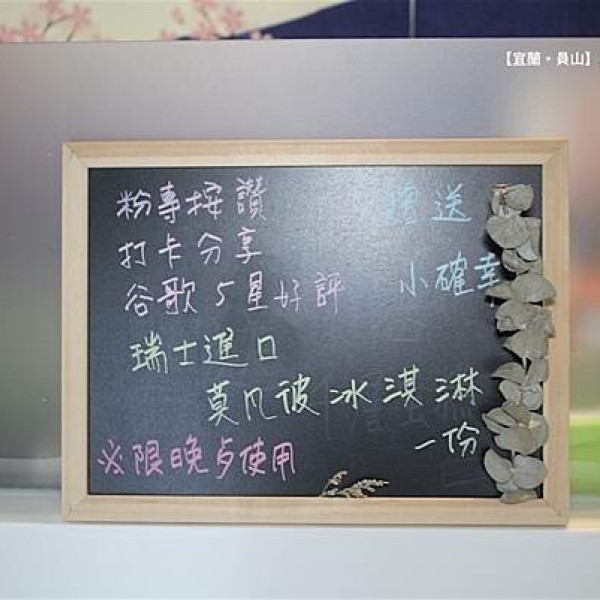 【宜蘭。員山】
粉專按讚
打卡分享
谷歌5星好評
贈送
小確幸
瑞士進口
莫凡彼冰淇淋
一份
※限晚点使用